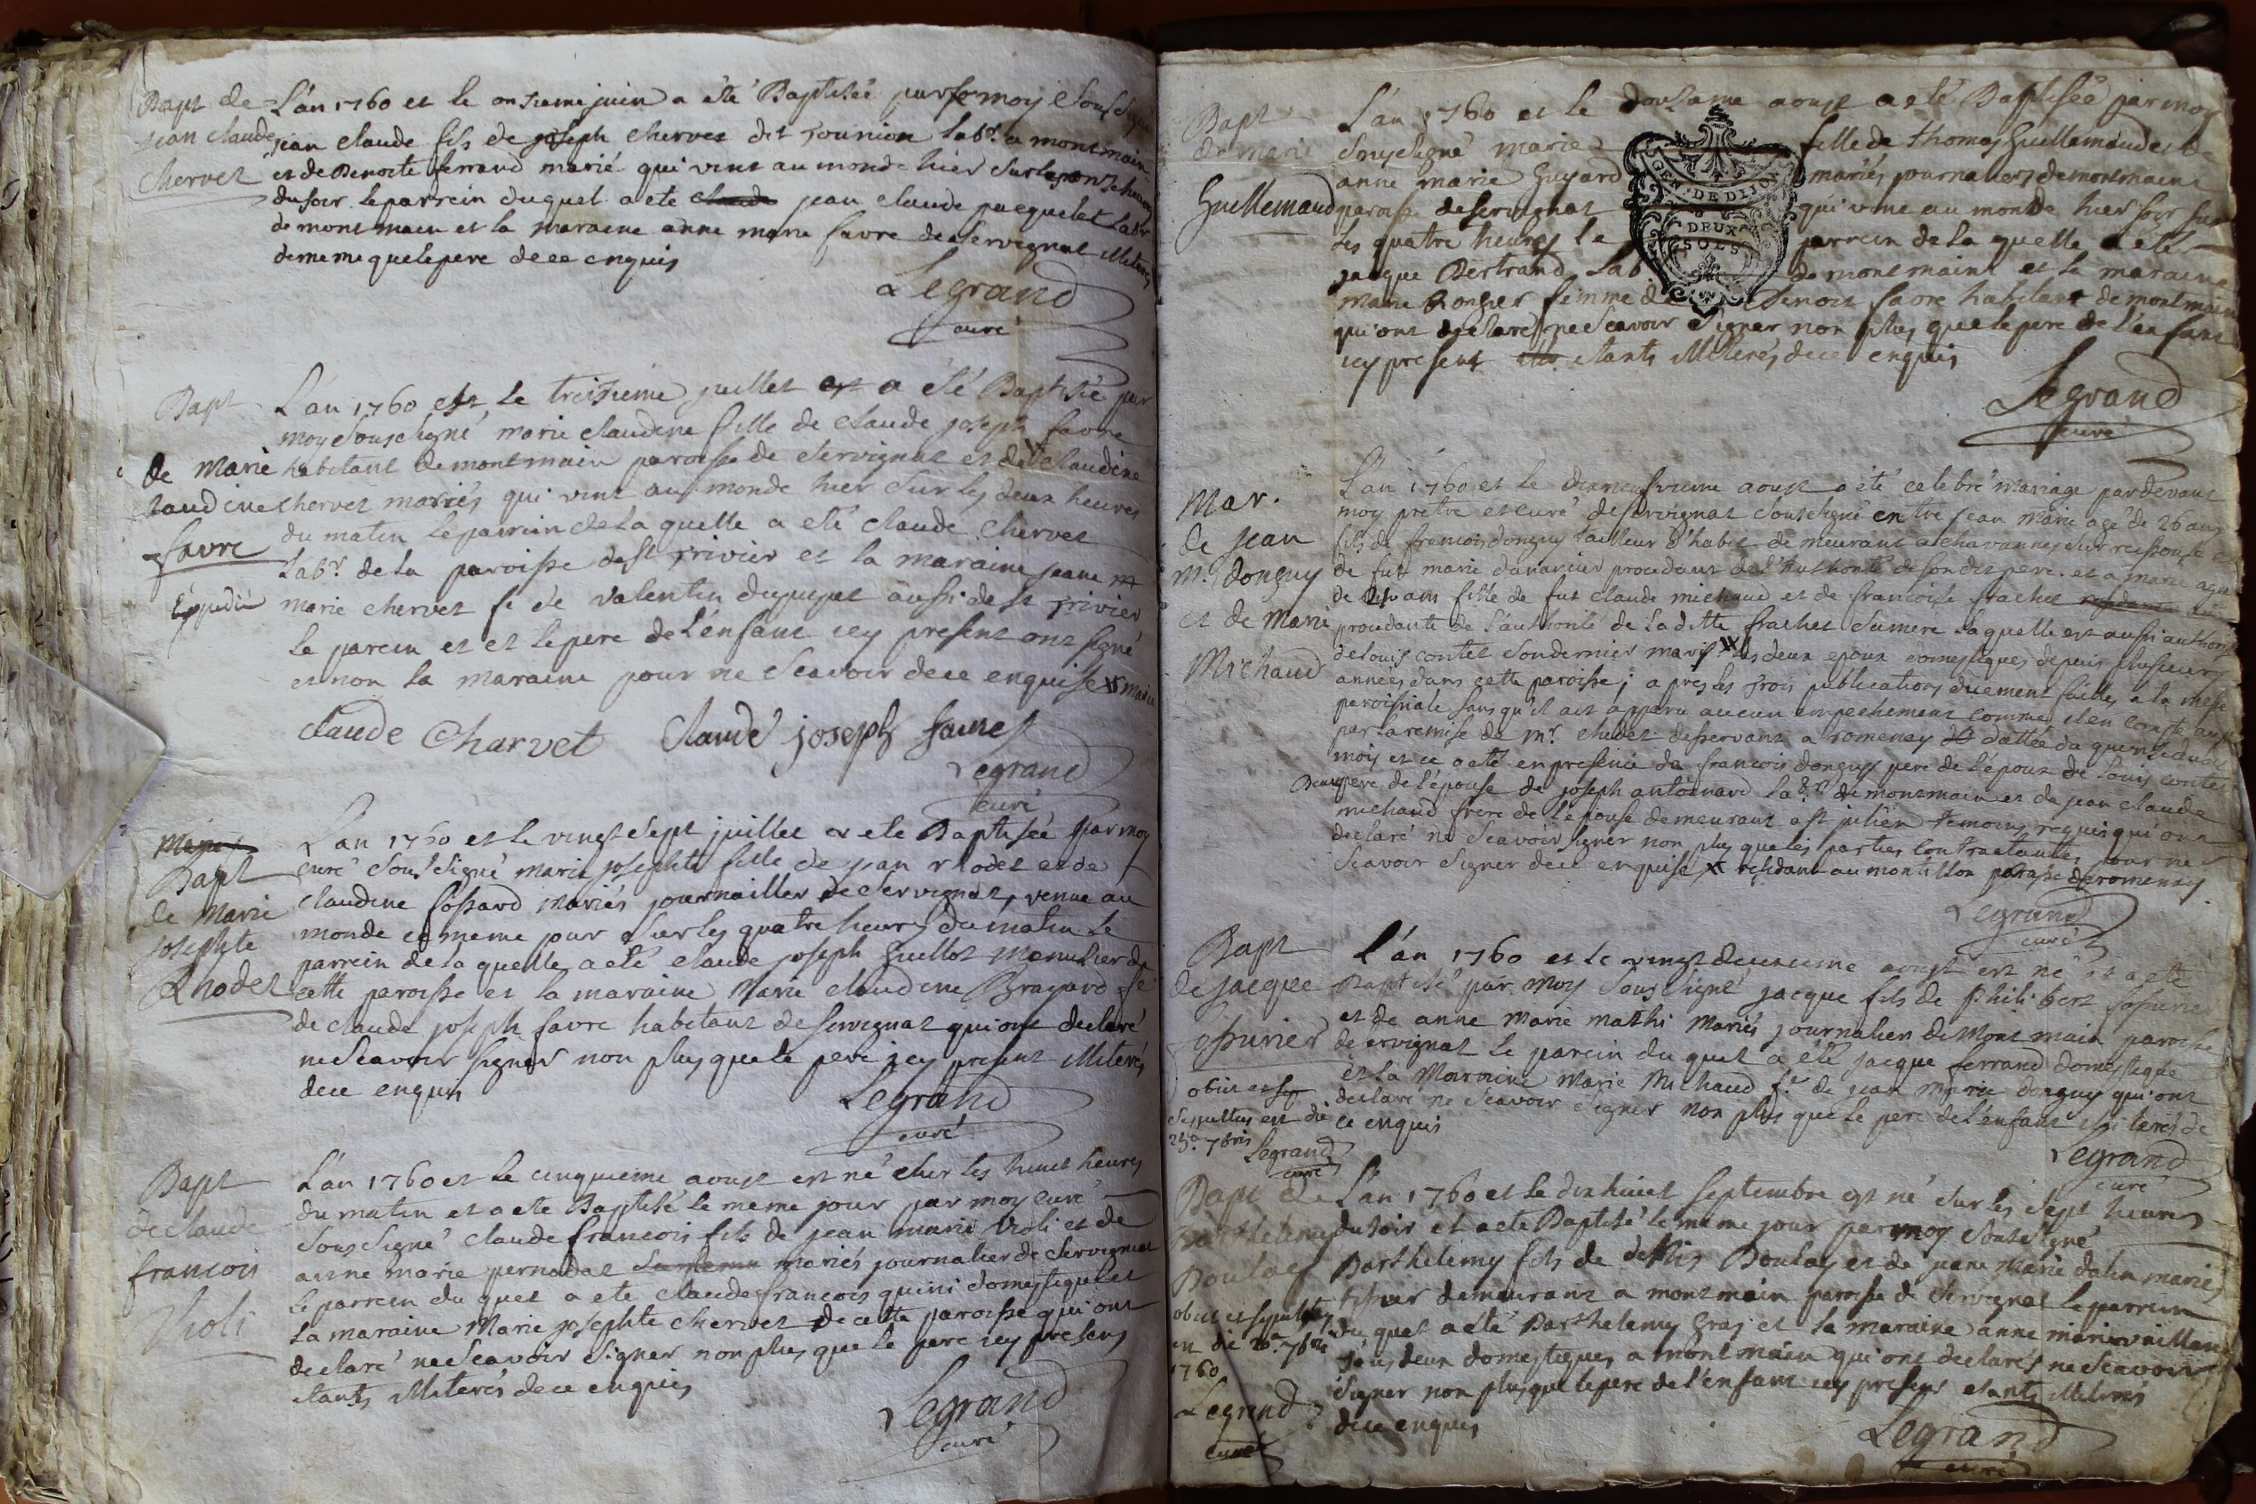 Bapt de
jean claude
Chervet
L'an 1760 et le onzieme juin a été Baptisée par moy Soussigné
jean claude fils de joseph chervet dit Tounion labr a montmain
et de Benoite ferrand marié qui vint au monde hier sur les onze heures
du soir le parrein duquel a ete claude jean claude paequelet labr
de mont main et la maraine anne marie favre de Servignat illiteré
de meme que le pere de ce enquis
Legrand
curé
Bapt
de Marie
claudine
favre
Expedié
L'an 1760 est le treizieme juillet est a élé Baptisée par
moy Soussigné marie claudine fille de claude joseph favre
habitant de montmain paroisse de Servignat et de claudine
chervet mariés qui vint au monde hier sur les deux heures
du matin le parrein de la quelle a eté claude chervet
labr de la paroisse de St Trivier et la maraine jeane m
marie chervet fe de valentin dupuget aussi de St Trivier
le parein et et le pere de l'enfant icy present ont signé
et non la maraine pour ne Scavoir de ce enquise
claude Charvet Claude joseph favre
Legrand
curé
Mari
Bapt
de Marie
josephte
Rhodet
L'an 1760 et le vingt sept juillet a ete Baptisée par moy
curé Soussigné marie josephte fille de jean rhodet et de
claudine fossard mariés journaillier de Servignat, venue au
monde ce meme jour sur les quatre heures du matin le
parrein de la quelle a eté claude joseph Guillot Menusier de
cette paroisse et la maraine Marie claudine Brayard fe
de claude joseph favre habitant de Servignat qui ont declaré
ne Scavoir signer non plus que le pere icy present illiterés
de ce enquis
Legrand
curé
Bapt
de claude
francois
Violi
L'an 1760 et le cinquieme aoust est né sur les huit heures
du matin et a ete Baptisé le meme jour par moy curé
Soussigné claude francois fils de jean marie Violi et de
anne marie pernodat mariés journalier de Servignat
le parrein du quel a ete claude francois quini domestique et
la maraine Marie josephte chervet de cette paroisse qui ont
declaré ne Scavoir signer non plus que le pere icy presens
etants illiterés de ce enquis
Legrand
curé
Bapt
de marie
Guillemaud
L'an 1760 et le douzame aoust a eté Baptisée par moy
Soussigné marie fille de thomas Guillemaud et de
anne marie Guyard mariés journaliers de montmain
paroisse de Servignat qui vint au monde hier soir sur
les quatre heures le parrein de la quelle a eté
jacque Bertrand lab de montmain et la maraine
marie Rongier femme de Benoit favre habitant de montmain
qui ont declaré ne Scavoir signer non plus que le pere de l'enfant
icy present etants illiterés de ce enquis
GEN. DE DIJON
DEUX
SOLS
Legrand
curé
Mar.
de jean
m. donguy
et de Marie
Michaud
L'an 1760 et le dixneufvieme aoust a été celebré mariage pardevant
moy pretre et curé de servignat Soussigné entre jean Marie agé de 26 ans
fils de francois donguy tailleur d'habit de meurant a chavannes sur reissouse et
de fut marie procedant de l'authorité de son dit pere. et a marie agée
de 21 ans fille de fut claude michaud et de francoise frachet
procedante de l'authorité de la ditte frachet sa mere laquelle est aussi authorisée
de louis contet son dernier mary les deux epoux domestiques depuis plusieurs
années dans cette paroisse ; apres les trois publications duement faittes a la messe
paroissiale sans qu'il ait apparu aucun enpechement comme il en conste aussi
par la remise de mr chedet desservant a romenay dattée du quinze dudit
mois et ce a eté en presence de francois donguy pere de l'epoux de louis contet
Beaupere de l'épouse de joseph antoinard labr de montmain et de jean claude
michaud frere de l'epouse demeurant a st julien temoins requis qui ont
declaré ne Scavoir signer non plus que les parties contractantes pour ne
Scavoir signer de ce enquise X residant au montillon paroisse de romenay
Legrand
curé
Bapt
de jacque
L'an 1760 et le vingt deuxieme aoust est né et a eté
Baptisé par moy Soussigné jacque fils de Philibert
et de anne Marie mathi Mariés journalier de Mont main paroisse
de Servignat le parein du quel a élé jacque ferrand domestique
et la Maraine Marie Michaud fe de jean Marie donguy qui ont
declaré ne Scavoir signer non plus que le pere de l'enfant illiterés de
ce enquis
obiit et
sepultus est die
25a 7bris
Legrand
curé
Legrand
curé
Bapt de
Barthelemy
Boulay
obiit et sepultus
in die 20a 7bris
1760
Legrand
curé
L'an 1760 et le dix huict Septembre est né sur les sept heures
du soir et a ete Baptisé le meme jour par moy Soussigné
Barthelemy fils de denis Boulay et de jeane Marie dalin mariés
tissier demeurant a montmain paroisse de Servignat le parrein
du quel a eté Barthelemy Gras et la maraine anne marie vaillant
tous deux domestiques a montmain qui ont declarés ne Scavoir
signer non plus que le pere de l'enfant icy presens etants illiterés
de ce enquis
Legrand
curé